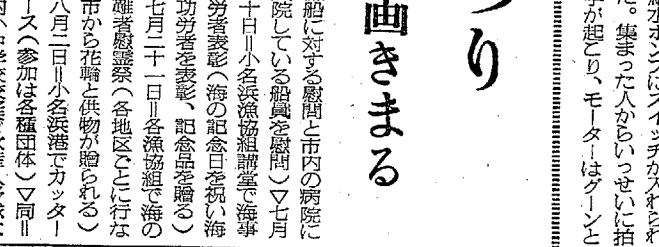 線ホポンプにスイッチが入れられ
た。集まった人からいっせいに拍
手が起こり、モーターはグーンと
つり
画きまる
船に対する慰問と市内の病院に
院している船員を慰問）▽七月
十日＝小名浜漁協組講堂で海事
労者表彰（海の記念日を祝い海
功労者を表彰、記念品を贈る）
七月二十一日＝各漁協組で海の
難者慰霊祭（各地区ごとに行な
市から花輪と供物が贈られる）
八月二日＝小名浜港でカッター
ース（参加は各種団体）▽同＝